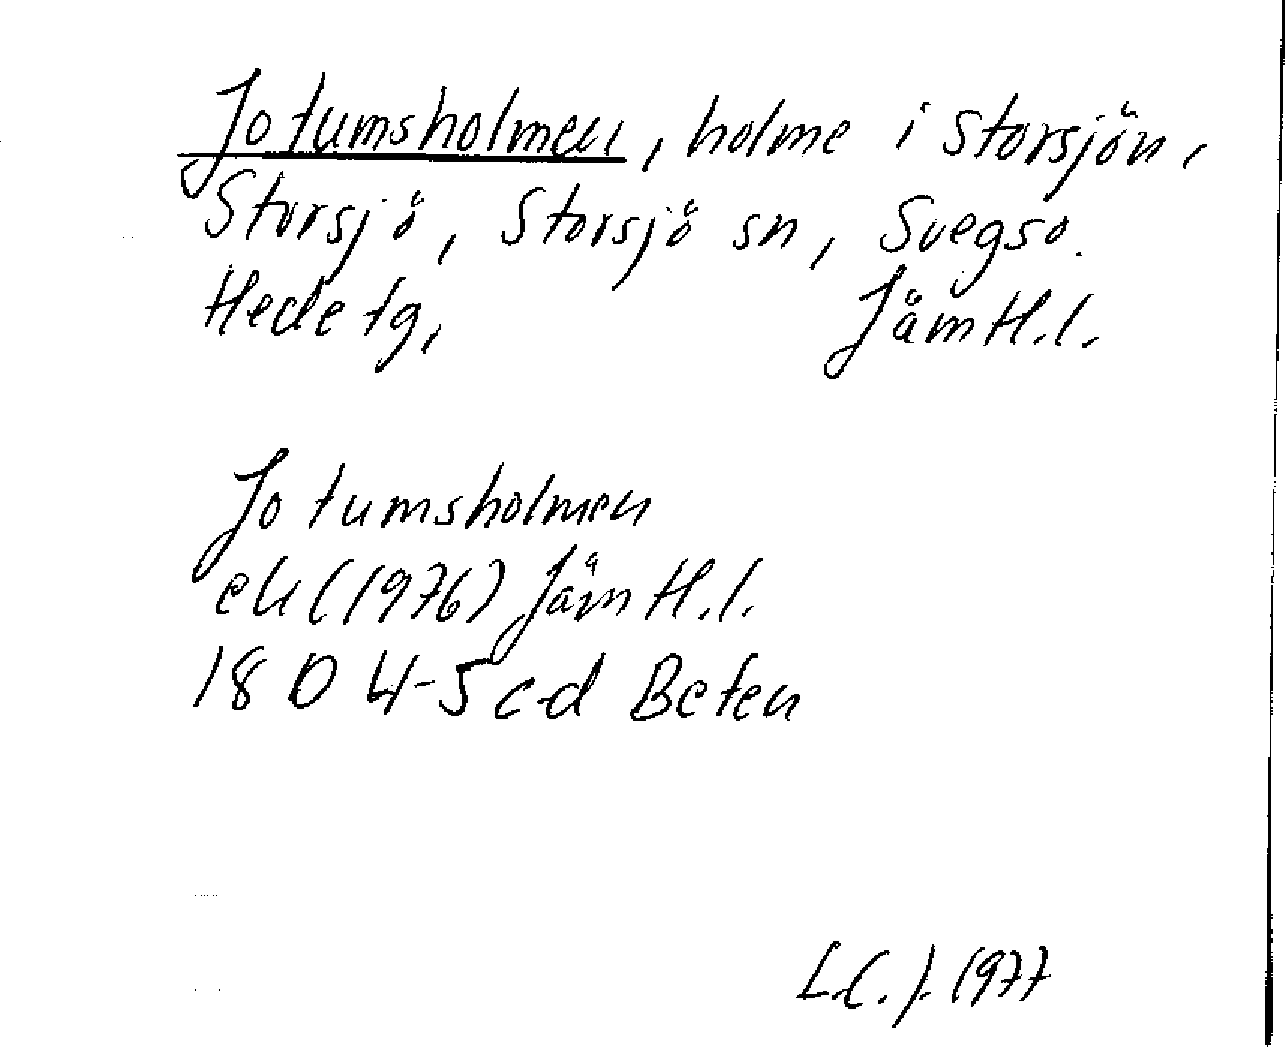 Jotumsholmen, holme i Storsjön,
Storsjö, Storsjö sn, Svegs o.
Hede tg, Jämtl. l.
Jotumsholmen
ek (1976) Jämtl. l.
18 D 4-5 c-d Beten
L.C.J. 1977